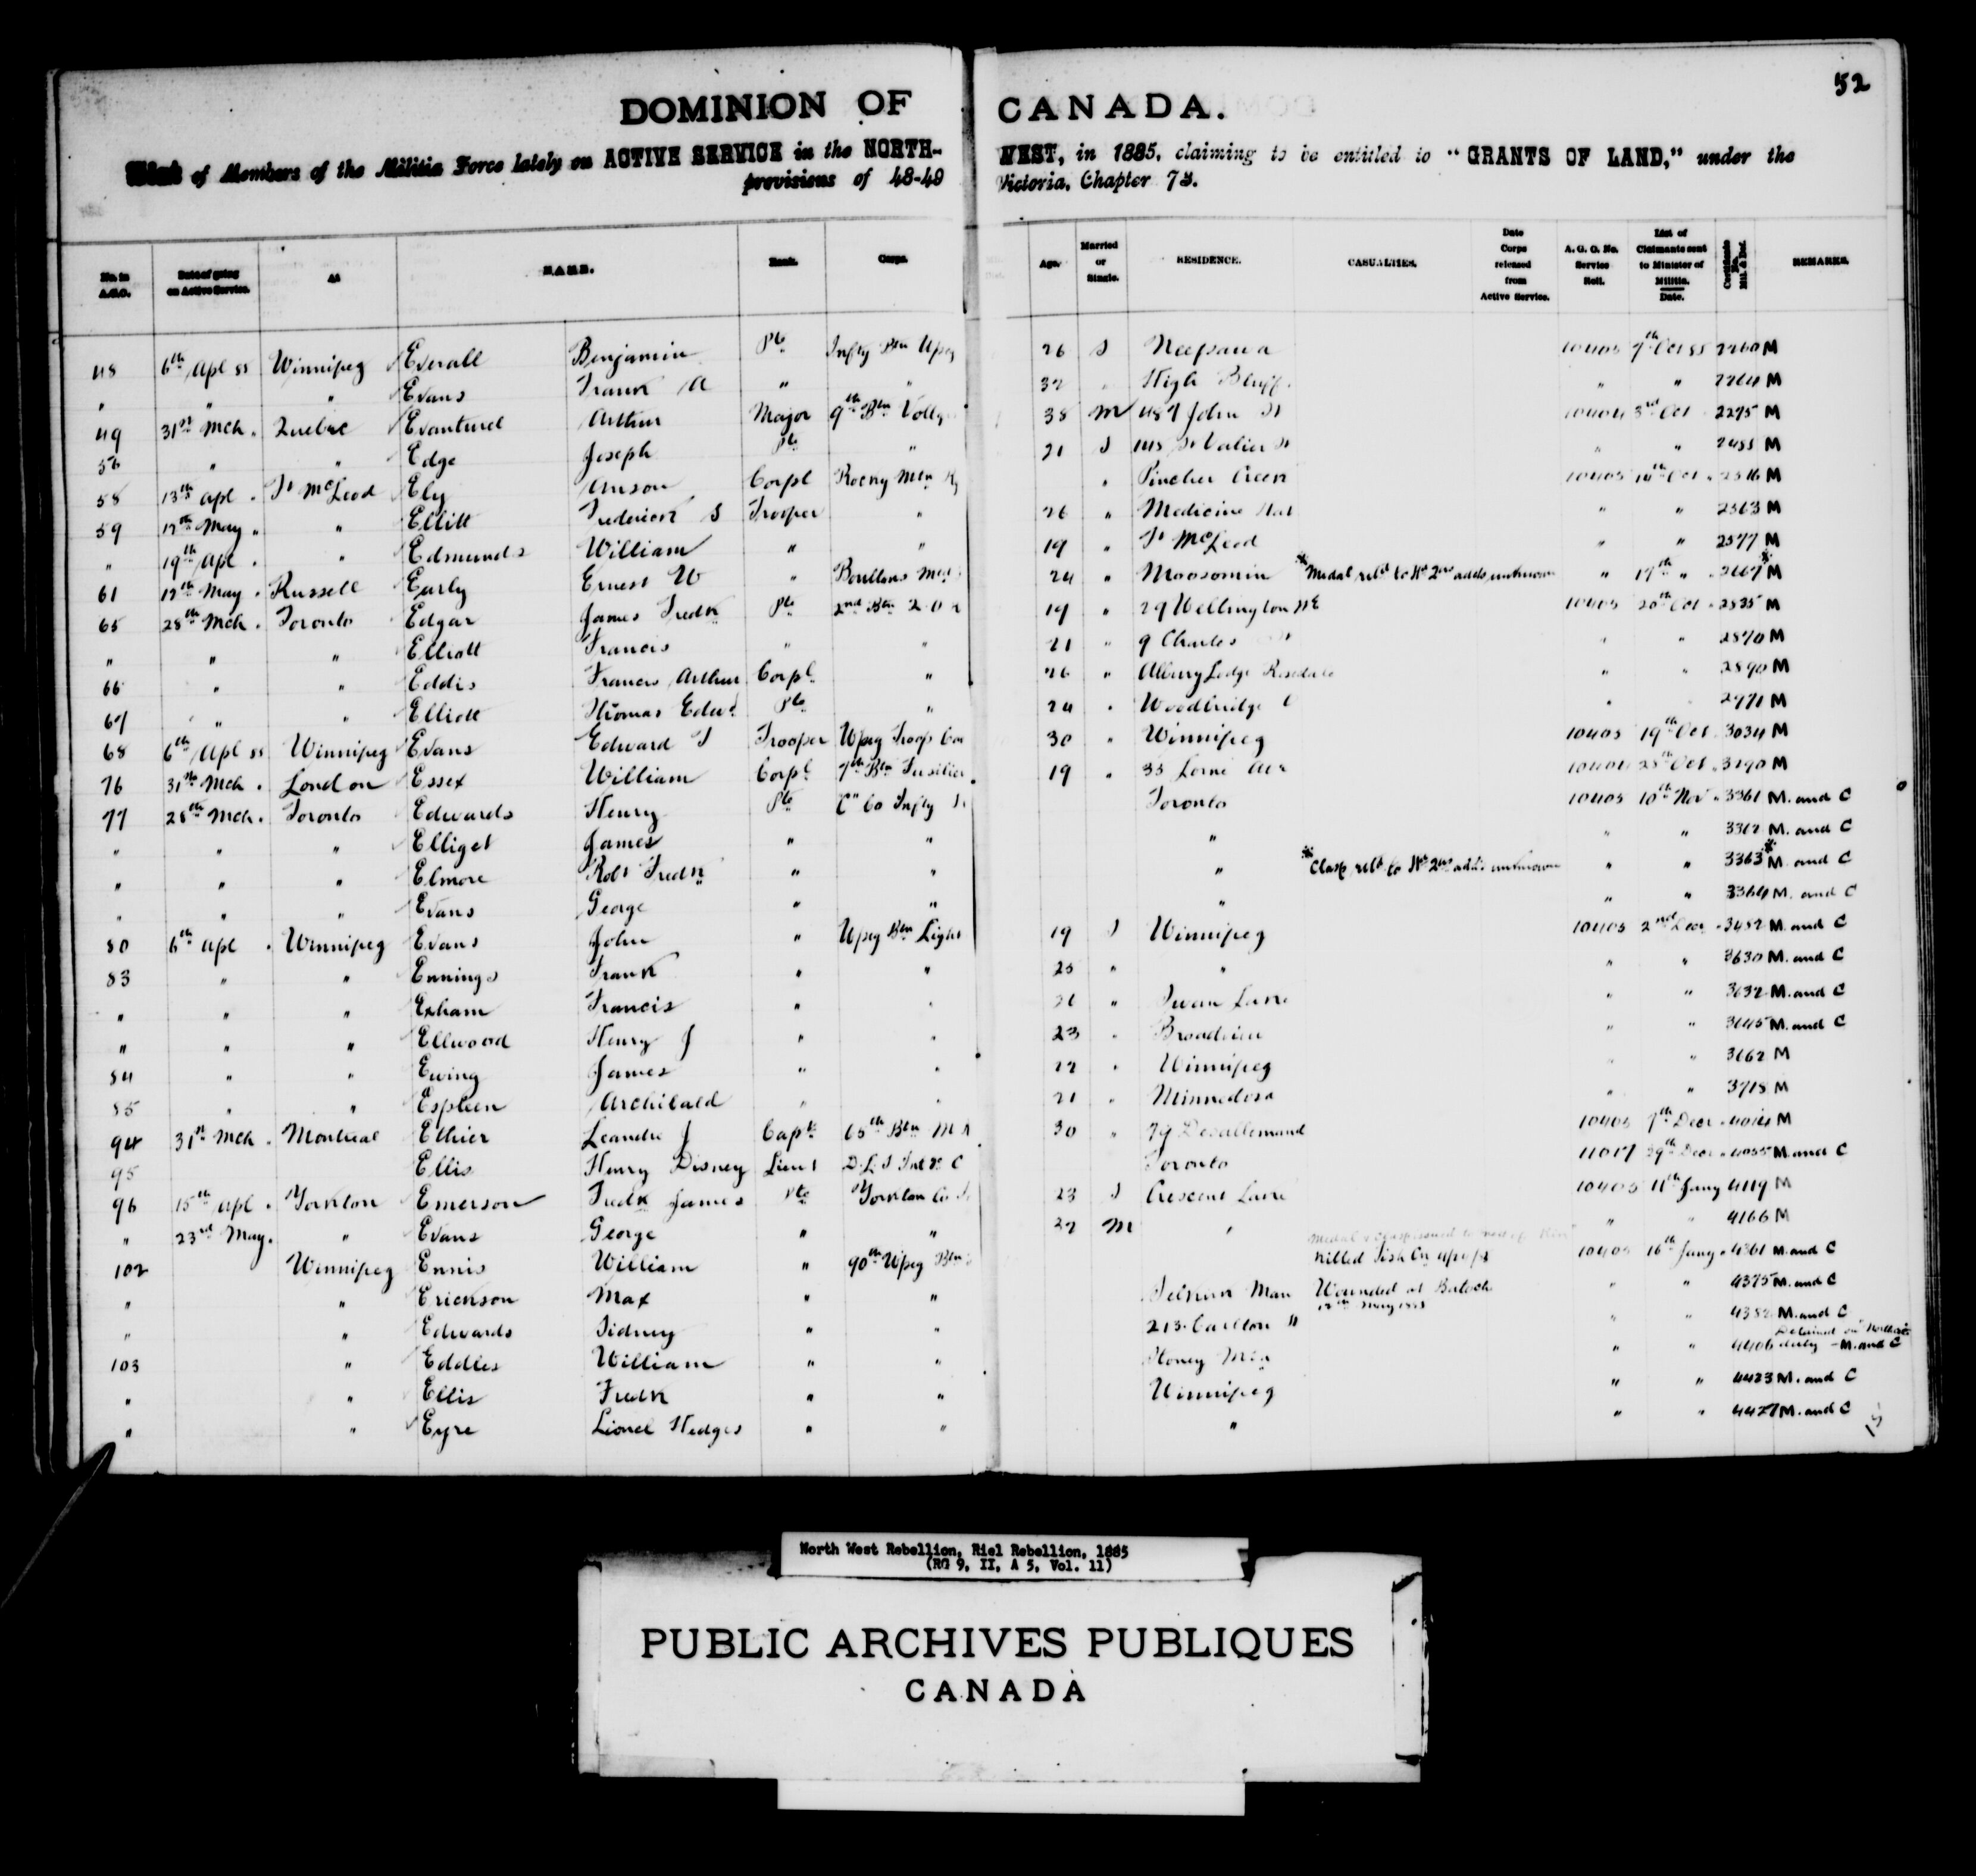 52
DOMINION OF CANADA.
of Members of the Militia Force lately on ACTIVE SERVICE in the NORTH-WEST, in 1885, claiming to be entitled to "GRANTS OF LAND," under the
provisions of 48-49 Victoria, Chapter 73.
No. in A.G.O. Date of going on Active Service. At NAME. Rank. Corps. Age. Married or Single. RESIDENCE. CASUALTIES. Date Corps released from Active Service. A. G. O. No. Service Roll. List of Claimants sent to Minister of Militia. Date. Certificate No. Mil. & Def. REMARKS.
48 6th Apl 85 Winnipeg Everall Benjamin Pte Infty Btn Wpeg 26 S Neepawa 10405 7th Oct 85 2260 M
" " " Evans Frank A " " 32 High Bluff " " 2264 M
49 31st Mch. Quebec Evanturel Arthur Major 9th Btn Voltg 38 M 487 John St 10404 3rd Oct 2275 M
56 " " Edge Joseph Pte " 21 S St Valier St " " 2485 M
58 13th Apl. Ft McLeod Ely Anson Corpl Rocky Mtn R " Pincher Creek 10405 14th Oct 2516 M
59 12th May " " Ellitt Frederick S Trooper " 26 " Medicine Hat " " 2563 M
" 19th Apl. " Edmunds William " " 19 " Ft McLeod " " 2577 M
61 12th May. Russell Early Ernest W " Boultons Mtd 24 " Moosomin *Medal retd to Hd Qrs adds unknown " 17th " 2667 M*
65 28th Mch. Toronto Edgar James Fredk Pte 2nd Btn Q O R 19 " 29 Wellington St E 10405 20th Oct 2835 M
" " " Elliott Francis " " 21 " 9 Charles St " " 2870 M
66 " " Eddis Francis Arthur Corpl " 26 " Lodge Rosedale " " 2890 M
67 " " Elliott Thomas Edwd Pte " 24 " Woodbridge O " 2971 M
68 6th Apl 85 Winnipeg Evans Edward T Trooper Wpeg Troop Cav 30 " Winnipeg 10405 19th Oct 3034 M
76 31st Mch. London Essex William Corpl 7th Btn Fusiliers 19 " 33 Lorne Ave 10404 28th Oct 3290 M
77 28th Mch. Toronto Edwards Henry Pte "C" Co Infty Toronto 10405 10th Nov 3361 M. and C
" " " Elliget James " " " " " 3362 M. and C
" " " Elmore Robt Fredk " " " *Clasp retd to Hd Qrs adds unknown " " 3363* M. and C
" " " Evans George " " " " " 3364 M. and C
80 6th Apl. Winnipeg Evans John " Wpeg Btn Light 19 S Winnipeg 10405 2nd Decr 3482 M. and C
83 " " Ennings Frank " " 25 " " " " 3630 M. and C
" " " Exham Francis " " 21 " Swan Lane " " 3632 M. and C
" " " Ellwood Henry J " " 23 " Broadview " " 3645 M. and C
84 " " Ewing James " " 22 " Winnipeg " " 3662 M
85 " " Espleen Archibald " " 21 " Minnedosa " " 3718 M
94 31st Mch. Montreal Ethier Leandre J Capt 65th Btn M R 30 " 79 Desallemand 10405 7th Decr 4014 M
95 Ellis Henry Disney Lieut D. L. S Int C Toronto 11017 29th Decr 4055 M. and C
96 15th Apl. Yorkton Emerson Fredk James Pte Yorkton Co 23 S Crescent Lake 10405 11th Jany 4119 M
" 23rd May. " Evans George " " 32 M " " " 4166 M
102 Winnipeg Ennis William " 90th Wpeg Btn Medal & Clasp issued to next of Kin Killed Fish Ck 10405 16th Jany 4361 M. and C
" " Erickson Max " " Selkirk Man Wounded at Batoche 12th May 1885 " " 4375 M. and C
" " Edwards Sidney " " 213 Carlton St " " 4382 M. and C
103 " Eddles William " " Stoney Mtn " " 4406 Detained on Northwest duty - M. and C
" " Ellis Fredk " " Winnipeg " " 4423 M. and C
" " Eyre Lionel Hedges " " " " " 4427 M. and C
North West Rebellion, Riel Rebellion, 1885
(RG 9, II, A 5, Vol. 11)
PUBLIC ARCHIVES PUBLIQUES
CANADA